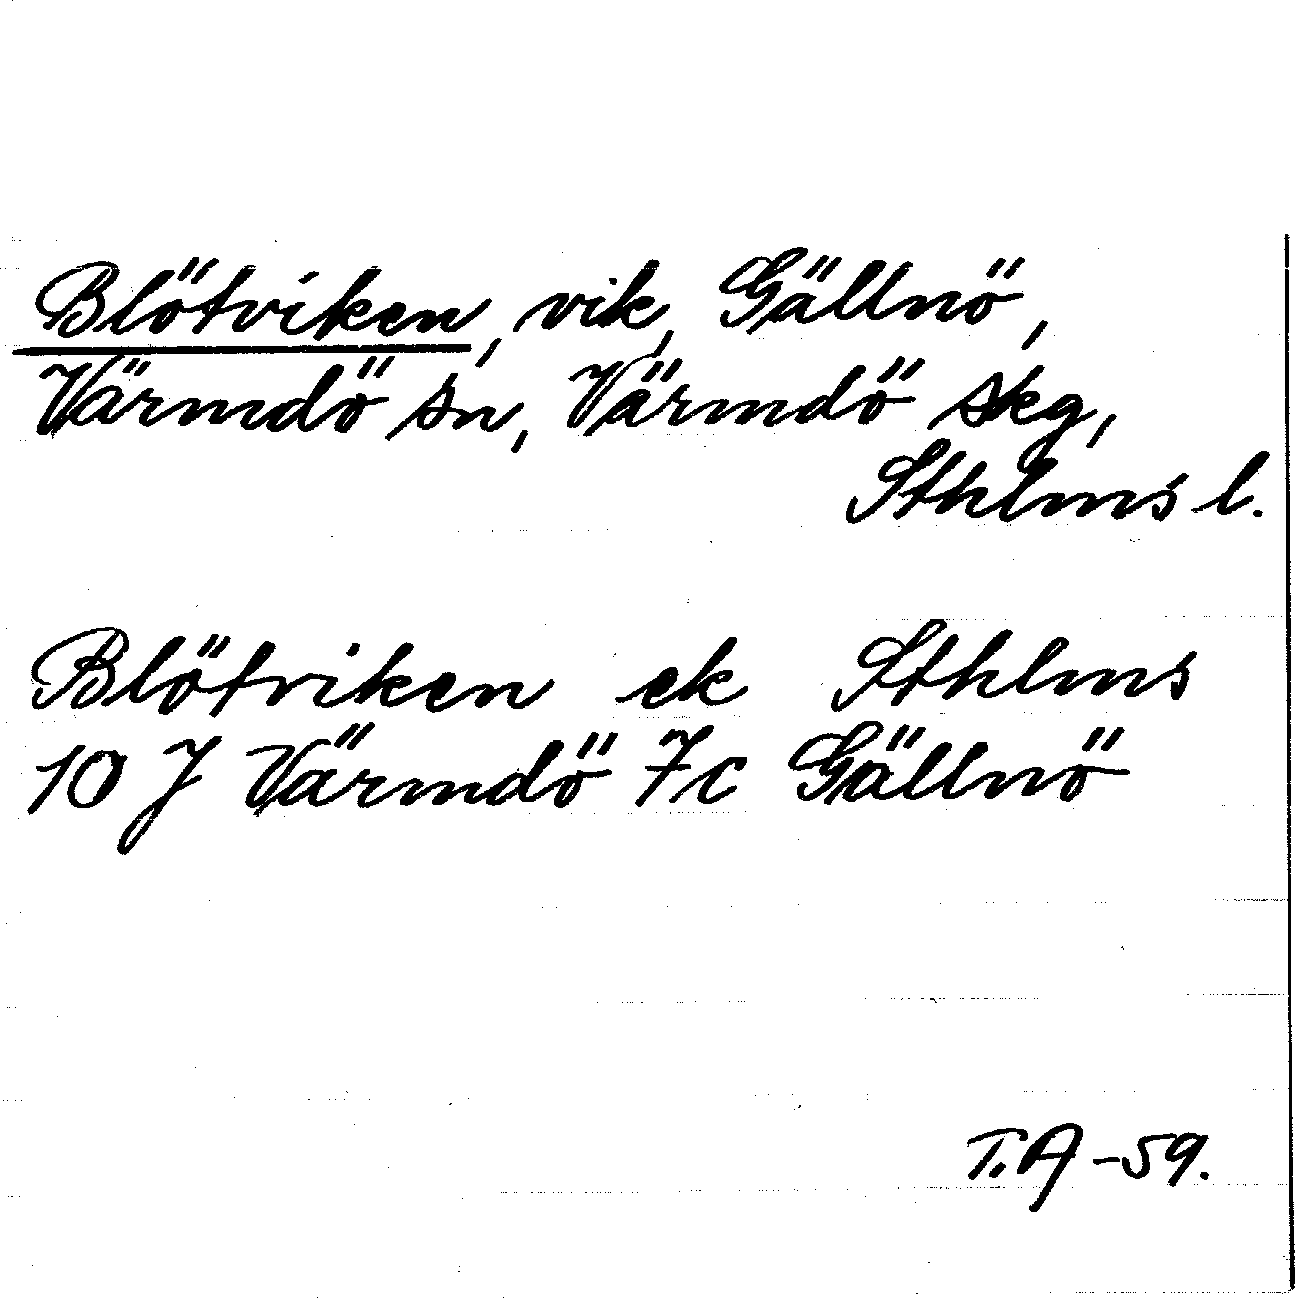 Blötviken, vik, Gällnö,
Värmdö sn, Värmdö skg,
Sthlms l.
Blötviken ek Sthlms
10 J Värmdö 7c Gällnö
T.A -59.